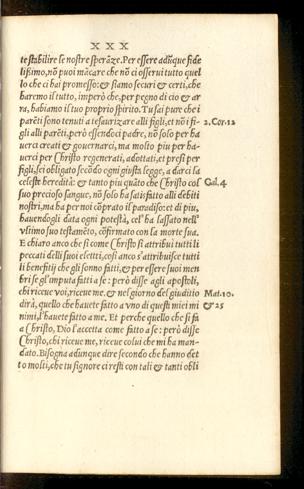 X X X
te stabilire le nostre sperãze. Per essere adũque fide
lißimo, nõ puoi mãcare che nõ ci osserui tutto quel
lo che ci hai promesso: & siamo securi & certi, che
haremo il tutto, imperò che, per pegno di cio & ar
ra, habiamo il tuo proprio spirito. Tu sai pure che i
parẽti sono tenuti a tesaurizare alli figli, et nõ i fi-
2. Cor. 12
gli alli parẽti. però essendoci padre, nõ solo per ha
uerci creati & gouernarci, ma molto piu per ha-
uerci per Christo regenerati, adottati, et presi per
figli, sei obligato secõdo ogni giusta legge, a darci la
celeste heredità: & tanto piu quãto che Christo col
Gal. 4
suo precioso sangue, nõ solo ha satisfatto alli debiti
nostri, ma ha per noi cõprato il paradiso: et di piu,
hauendogli data ogni potestà, cel' ha lassato nell'
vltimo suo testamẽto, cõfirmato con la morte sua.
E chiaro anco che si come Christo si attribui tutti li
peccati delli suoi eletti, cosi anco s' attribuisce tutti
li benefitij che gli sonno fatti, & per essere suoi mem
bri se gl' imputa fatti a se: però disse agli apostoli,
chi riceue voi, riceue me. & nel giorno del giuditio
Mat. 10.
dirà, quello che hauete fatto a vno di questi miei mi
& 25
nimi, l' hauete fatto a me. Et perche quello che si fa
a Christo, Dio l' accetta come fatto a se: però disse
Christo, chi riceue me, riceue colui che mi ha man-
dato. Bisogna adunque dire secondo che hanno det
to molti, che tu signore ci resti con tali & tanti obli